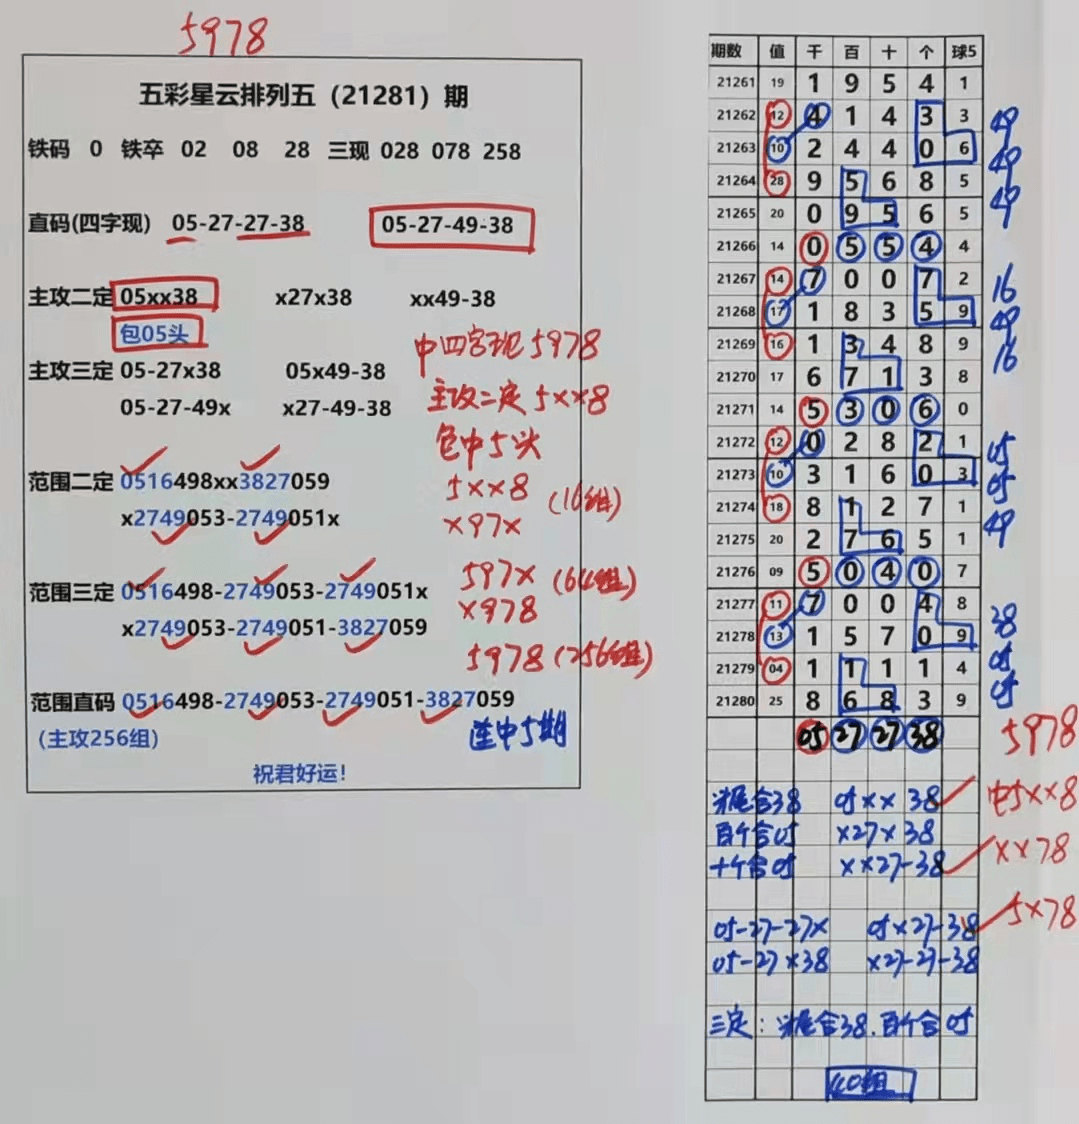 5978
五彩星云排列五（21281）期
铁码 0 铁卒 02 08 28 三现 028 078 258
直码(四字现) 05-27-27-38 05-27-49-38
主攻二定 05xx38 x27x38 xx49-38
包05头
中四字现5978
主攻三定 05-27x38 05x49-38
主攻二定5xx8
05-27-49x x27-49-38
包中5头
范围二定 0516498xx3827059
5xx8 (16组)
x2749053-2749051x
x97x
范围三定 0516498-2749053-2749051x
597x (64组)
x2749053-2749051-3827059
x978
5978 (256组)
范围直码 0516498-2749053-2749051-3827059
(主攻256组)
连中5期
祝君好运!
期数 值 千 百 十 个 球5
21261 19 1 9 5 4 1
21262 12 4 1 4 3 3 49
21263 10 2 4 4 0 6 49
21264 28 9 5 6 8 5 49
21265 20 0 9 5 6 5
21266 14 0 5 5 4 4
21267 14 7 0 0 7 2 16
21268 17 1 8 3 5 9 49
21269 16 1 3 4 8 9 16
21270 17 6 7 1 3 8
21271 14 5 3 0 6 0
21272 12 0 2 8 2 1 05
21273 10 3 1 6 0 3 05
21274 18 8 1 2 7 1 49
21275 20 2 7 6 5 1
21276 09 5 0 4 0 7
21277 11 7 0 0 4 8 38
21278 13 1 5 7 0 9 05
21279 04 1 1 1 1 4 05
21280 25 8 6 8 3 9
05 27 27 38 5978
合38 05xx38 中5xx8
百个合05 x27x38
十个合05 xx27-38 xx78
05-27-27x 05x27-38 5x78
05-27x38 x27-27-38
三定: 合38.百个合05
40组